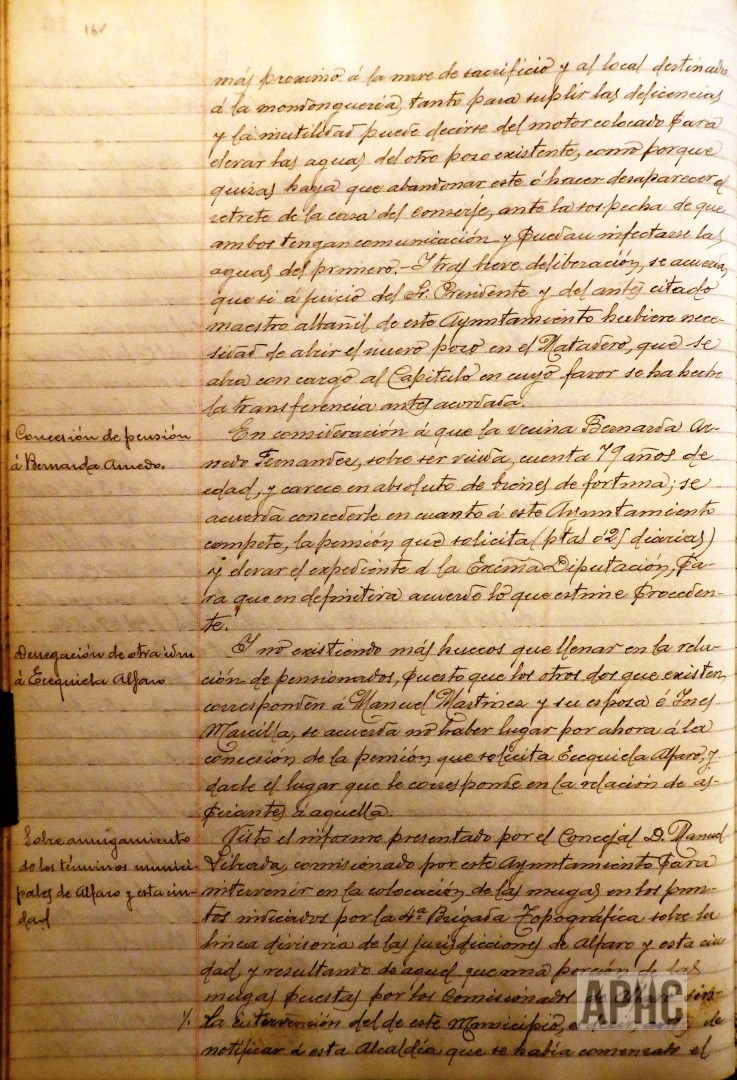 16
más proximo á la nave de sacrificio y al local destinado
á la mondongueria, tanto para suplir las deficencias
y la inutilidad puede decirse del motor colocado para
elevar las aguas del otro pozo existente, como porque
quizas haya que abandonar este ó hacer desaparecer el
retrete de la casa del conserje, ante la sospecha de que
ambos tengan comunicación y puedan infectarse las
aguas del primero.- Y tras breve deliberación, se acuerda,
que si á juicio del Sr. Presidente y del antes citado
maestro albañil de este Ayuntamiento hubiere nece-
sidad de abrir el nuevo pozo en el Matadero, que se
abra con cargo al Capitulo en cuyo favor se ha hecho
la transferencia antes acordada.
Concesión de pensión
á Bernarda Arnedo.
En consideración á que la vecina Bernarda Ar-
nedo Fernandez, sobre ser viuda, cuenta 79 años de
edad, y carece en absoluto de bienes de fortuna; se
acuerda concederle en cuanto á este Ayuntamiento
compete, la pensión que solicita (ptas 0'25 diarias)
y elevar el expediente á la Excma Diputación, pa-
ra que en definitiva acuerde lo que estime proceden-
te.
Denegación de otra idm
á Ecequiela Alfaro
Y no existiendo más huecos que llenar en la rela-
ción de pensionados, puesto que los otros dos que existen,
corresponden á Manuel Martinez y su esposa é Ines
Marcilla, se acuerda no haber lugar por ahora á la
concesión de la pensión que solicita Ecequiela Alfaro, y
darle el lugar que le corresponde en la relación de as-
pirantes á aquella.
Sobre amugamiento
de los términos munici-
pales de Alfaro y esta ciu-
dad
Visto el informe presentado por el Concejal D. Manuel
comisionado por este Ayuntamiento para
intervenir en la colocación de las mugas en los pun-
tos indicados por la 4ª Brigada Topográfica sobre la
linea divisoria de las jurisdicciones de Alfaro y esta ciu
dad, y resultando de aquel que una porción de las
mugas puestas por los Comisionados de Alfaro sin
la intervención del de este Municipio, de
notificar á esta Alcaldía que se había comenzado el
APHC